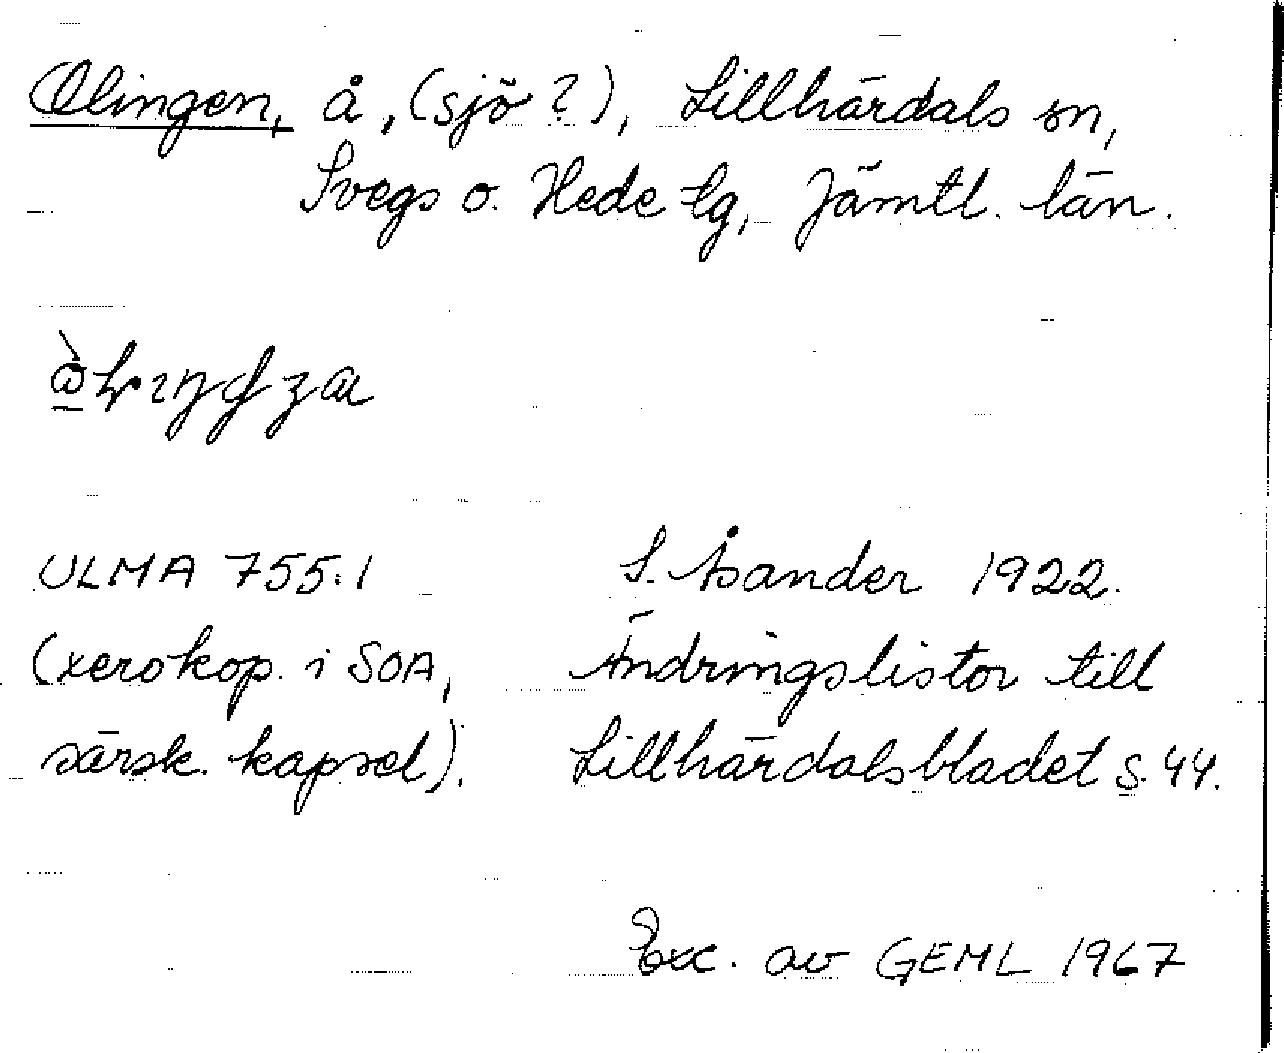 Olingen, å, (sjö?), Lillhärdals sn,
Svegs o. Hede tg, Jämtl. län.
ULMA 755:1
S. Åsander 1922.
(xerokop. i SOA,
Ändringslistor till
särsk. kapsel).
Lillhärdalsbladet s. 44.
Exc. av GEML 1967